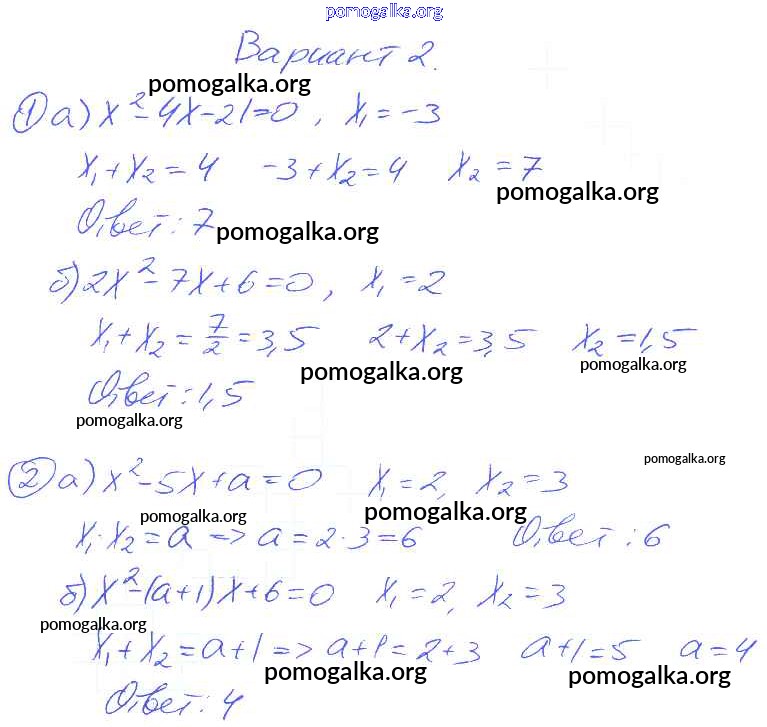 pomogalka.org
Вариант 2.
pomogalka.org
① а) x² - 4x - 21 = 0 , x₁ = -3
x₁ + x₂ = 4 -3 + x₂ = 4 x₂ = 7
pomogalka.org
Ответ: 7
pomogalka.org
б) 2x² - 7x + 6 = 0 , x₁ = 2
x₁ + x₂ = 7/2 = 3,5 2 + x₂ = 3,5 x₂ = 1,5
pomogalka.org pomogalka.org
Ответ: 1,5
pomogalka.org
pomogalka.org
② а) x² - 5x + a = 0 x₁ = 2, x₂ = 3
pomogalka.org pomogalka.org
x₁ · x₂ = a => a = 2 · 3 = 6 Ответ: 6
б) x² - (a+1)x + 6 = 0 x₁ = 2, x₂ = 3
pomogalka.org
x₁ + x₂ = a + 1 => a + 1 = 2 + 3 a + 1 = 5 a = 4
pomogalka.org pomogalka.org
Ответ: 4